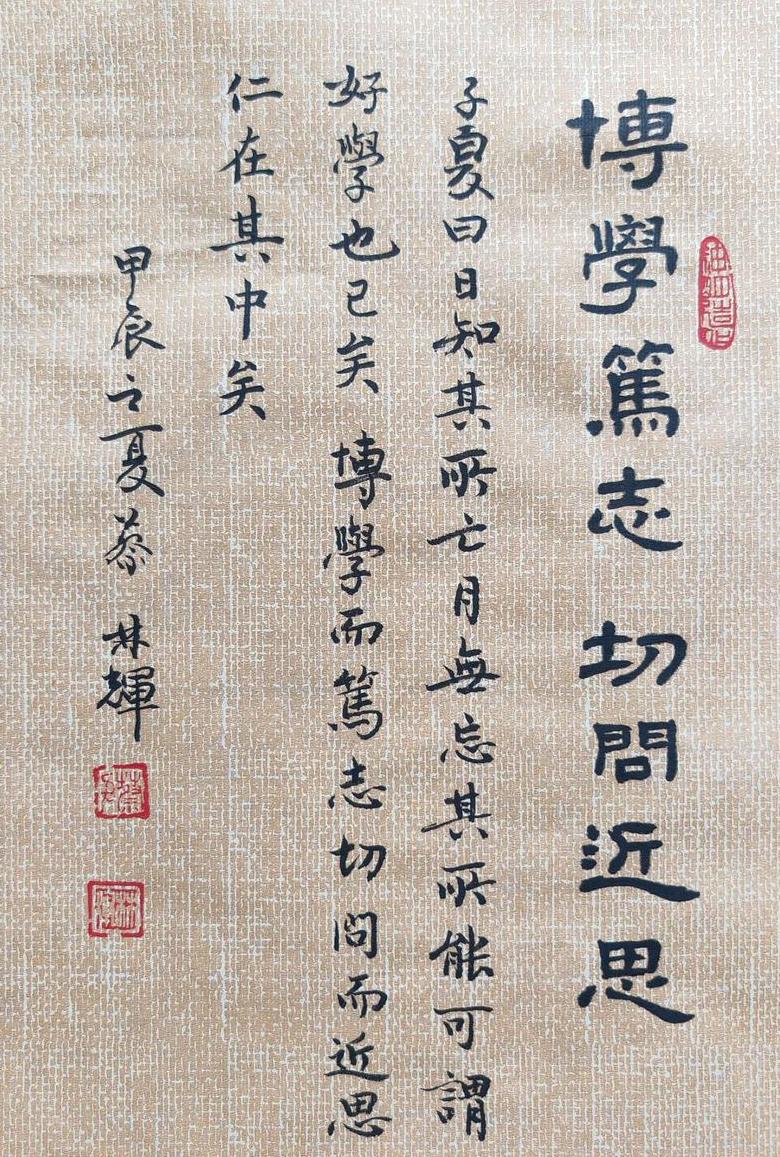 博學篤志 切問近思
子夏曰日知其所亡月無忘其所能可謂
好學也已矣 博學而篤志切問而近思
仁在其中矣
甲辰之夏蔡林輝